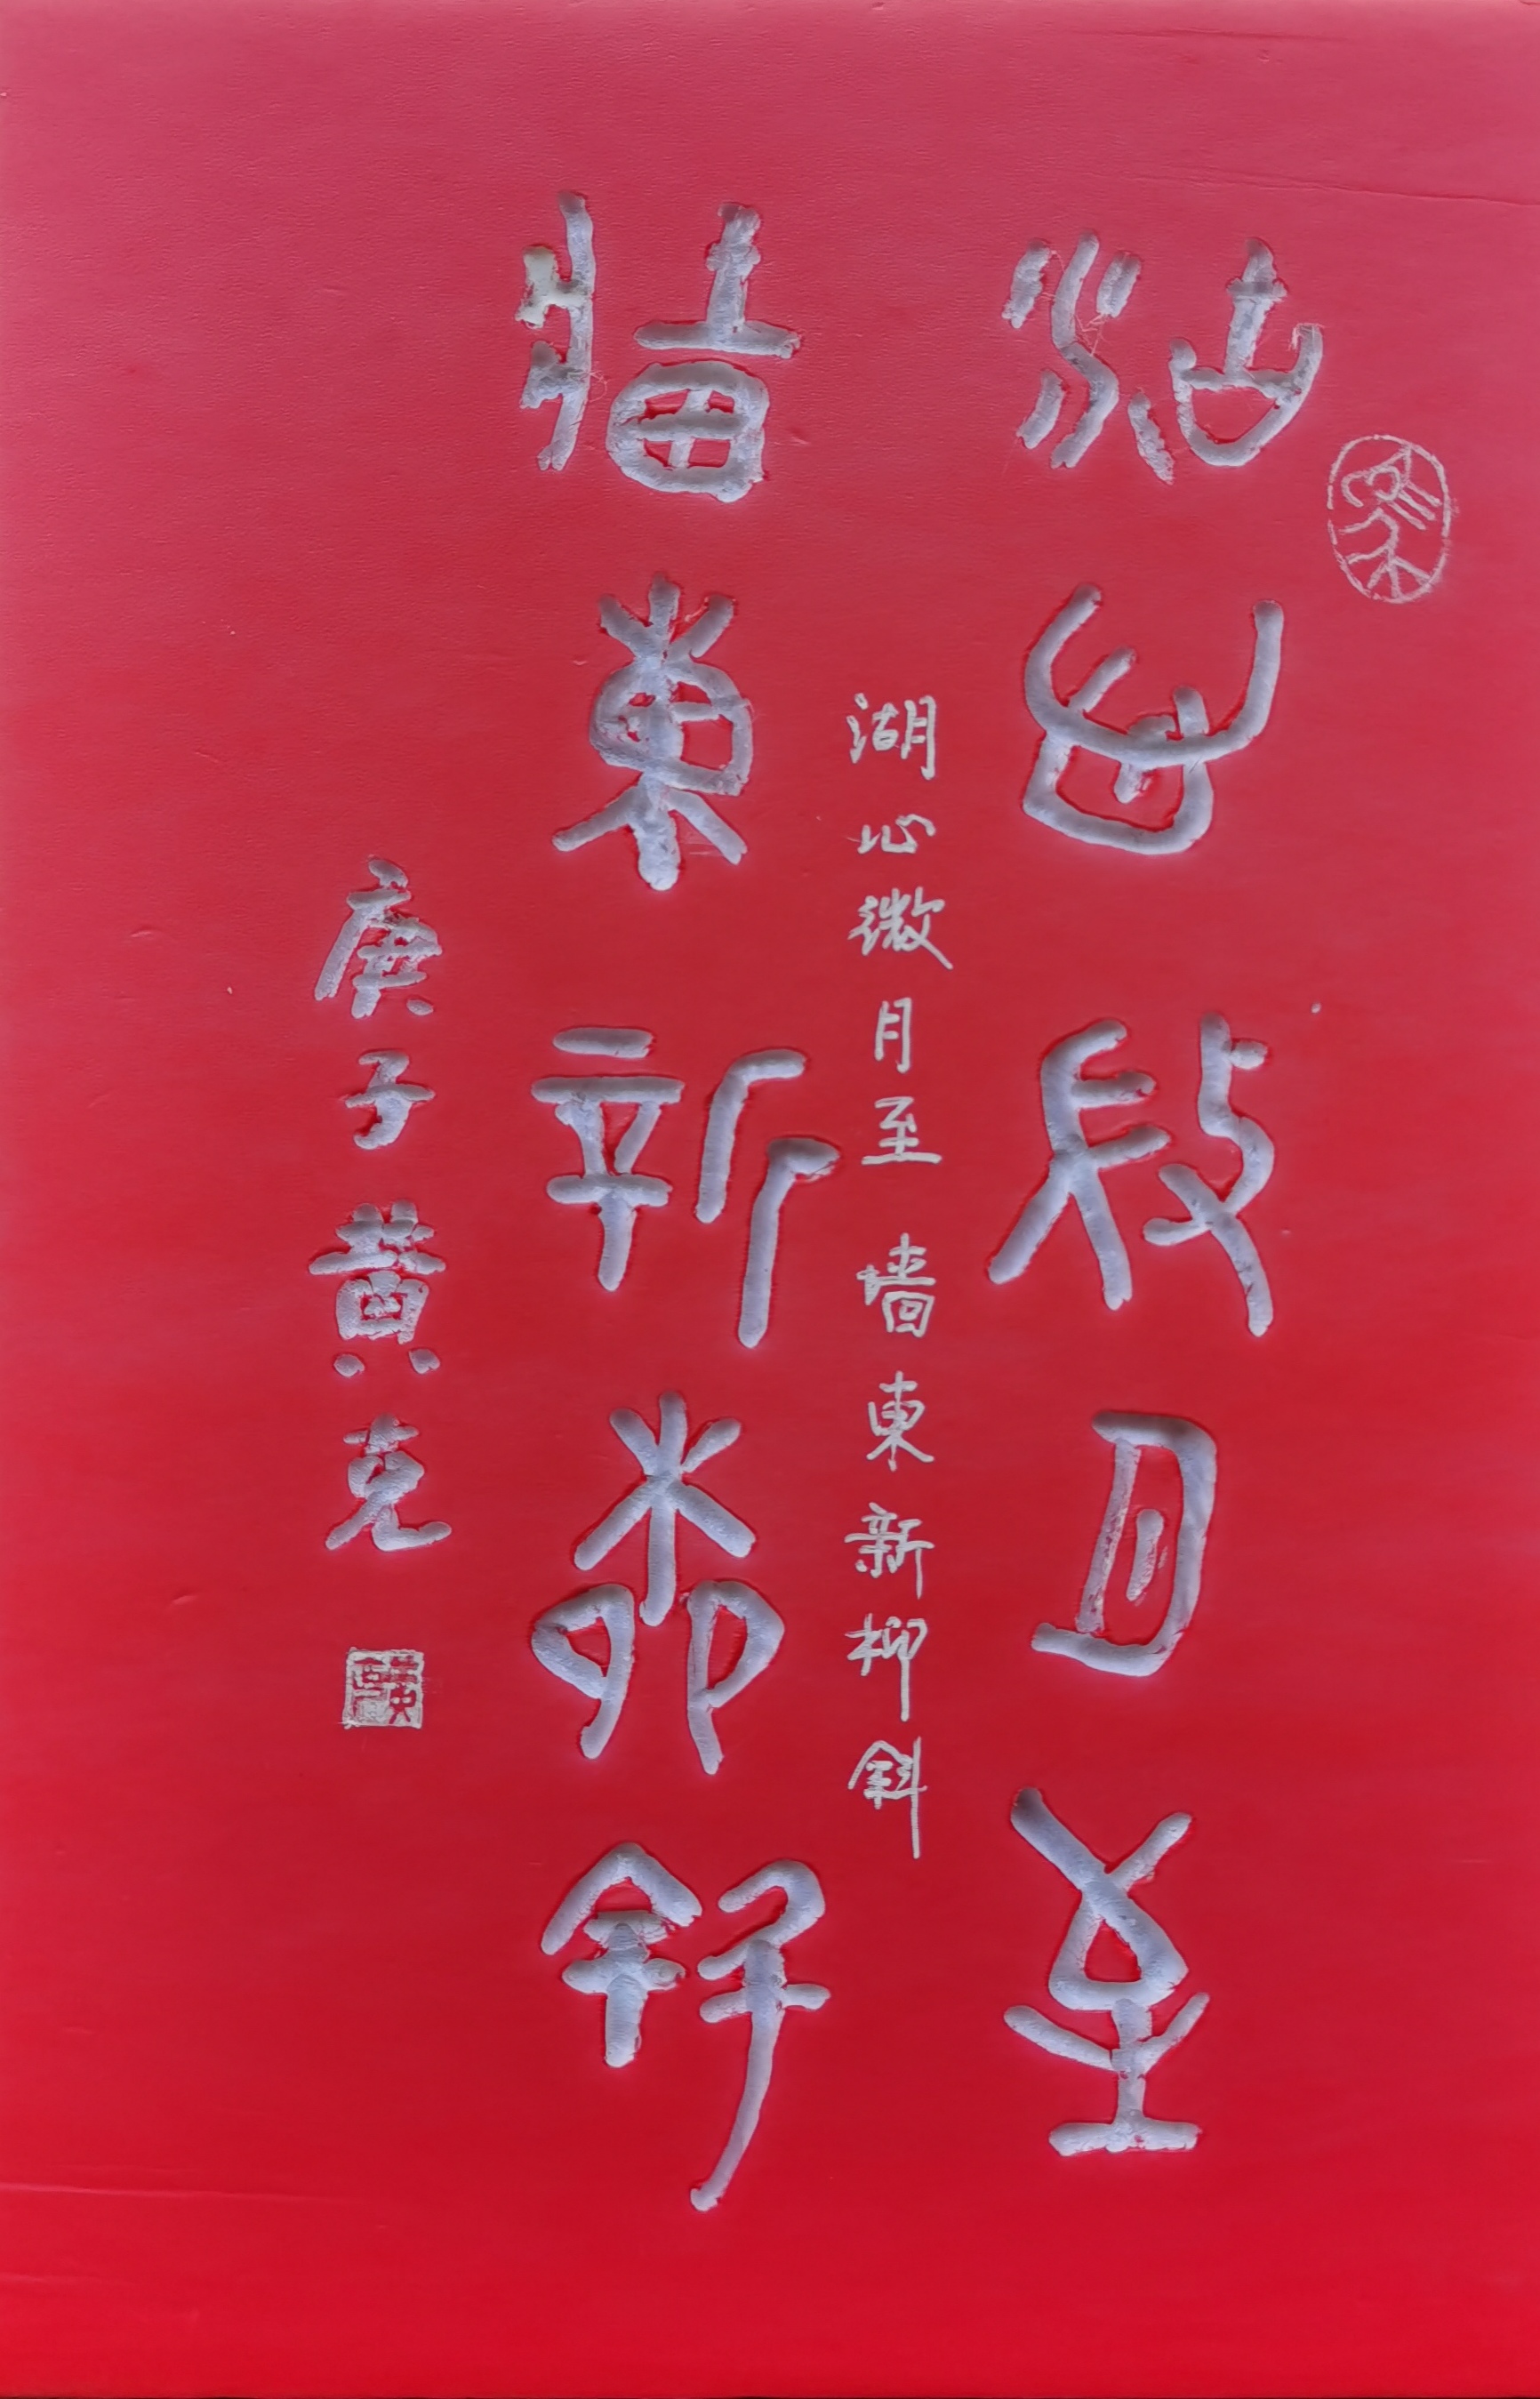 湖心微月至
湖心微月至 墙東新柳斜
墙東新柳斜
庚子黄克